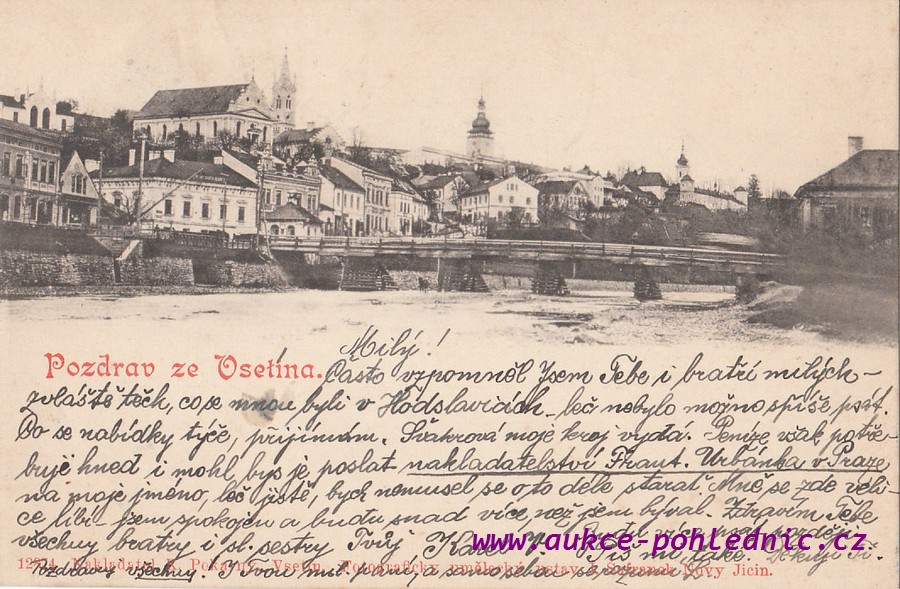 Pozdrav ze Vsetína.
Milý!
Často vzpomněl jsem Tebe i bratří milých –
zvláště těch, co se mnou byli v Hodslavicích – leč nebylo možno spíše psát.
Co se nabídky týče, přijímám. Švakrová moje kroj vydá. Peníze však potře-
buje hned i mohl bys je poslat nakladatelství Fraut. Urbánka v Praze
na moje jméno, leč jistě, bych nemusel se o to déle starat. Mně se zde veli-
ce líbí – jsem spokojen a budu snad více, než jsem býval. Zdravím Tebe
všechny bratry i sl. sestry Tvůj
www.aukce-pohlednic.cz
Děkuji Ti.
Nakladatel K. Pokorný, Vsetín. Fotografický umělecký ústav Nový Jičín.
Pozdravuj všechny.